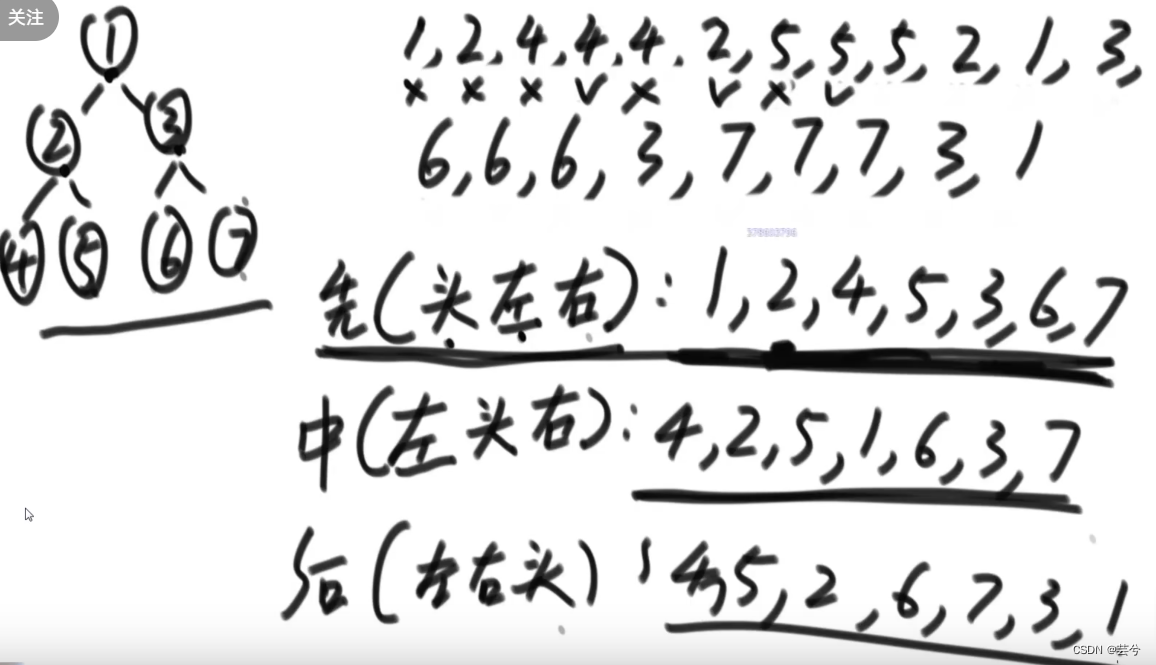 关注
1
2 3
4 5 6 7
1,2,4,4,4.2,5,5,5,2,1,3,
× × × ∨ × ∨ × ∨
6,6,6,3,7,7,7,3,1
先(头左右):1,2,4,5,3,6,7
中(左头右):4,2,5,1,6,3,7
后(左右头):4,5,2,6,7,3,1
CSDN @芸兮